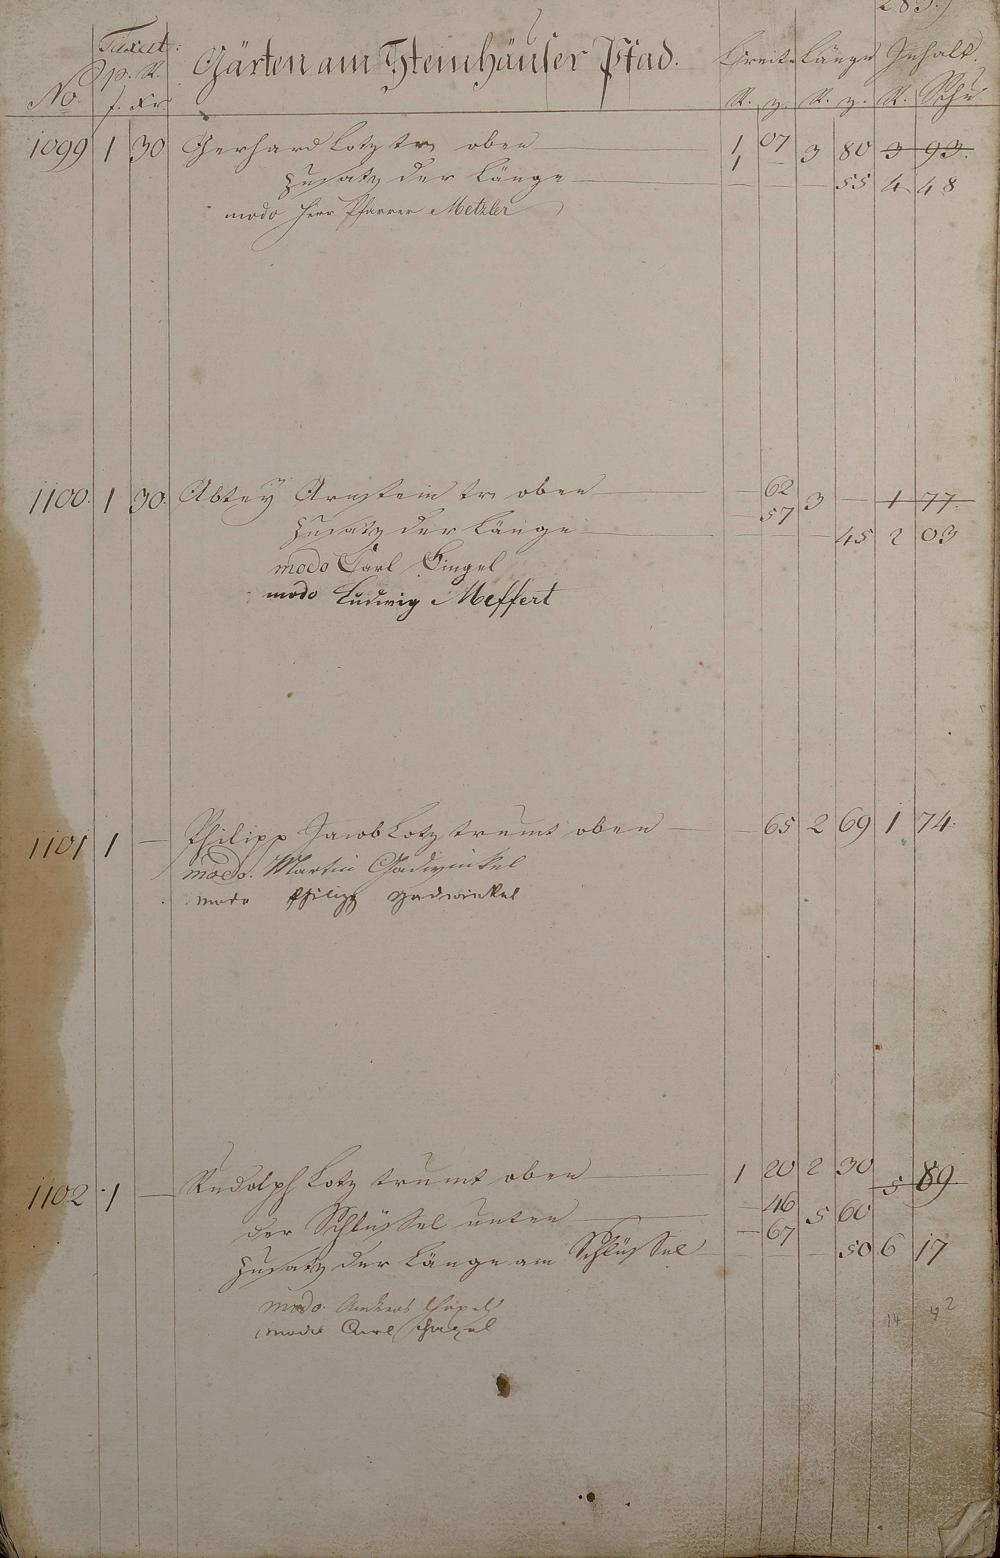 285.
Taxat:
No. p. R. Gärten am Steinhäuser Pfad. Breite Länge Inhalt.
f. Xr R. z. R. z. R. Schu
1099 1 30 Gerhard Lotz tr. oben 1 07 3 80 3 93.
1 —
Zusatz der Länge — — 55 4 48
modo Herr Pfarrer Metzler
1100. 1 30. Abtey Arnstein tr. oben — 62 3 — 1 77.
— 57
Zusatz der Länge — — — 45 2 03
modo Carl Bingel
modo Ludwig Meffert
1101 1 — Philipp Jacob Lotz trumt oben — 65 2 69 1 74.
modo. Martin Gadwinkel
modo Philipp Gadwinkel
1102 1 — Rudolph Lotz trumt oben 1 20 2 30 5 89
der Schlüssel unten — 46 5 60
— 67
Zusatz der Länge am Schlüssel — — — 50 6 17
modo. Andreas
modo Carl
14 42